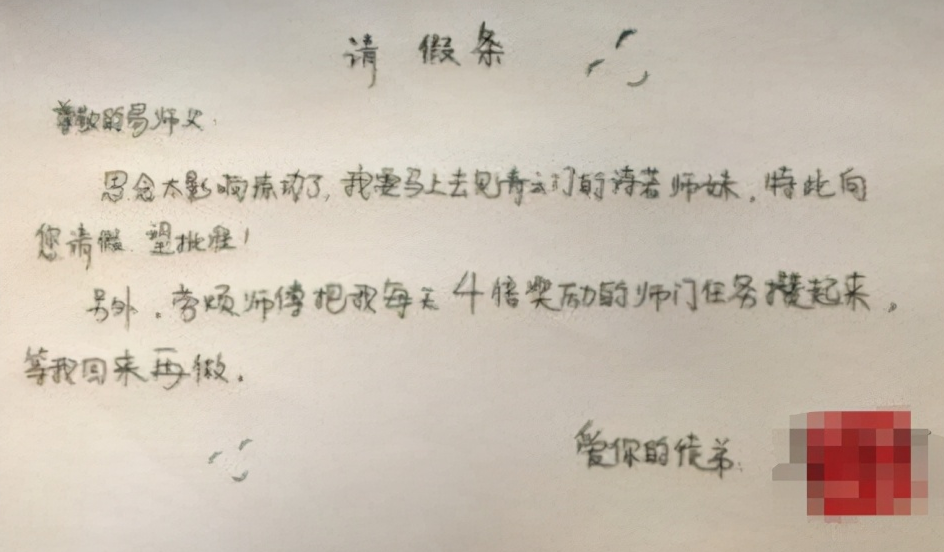 请假条
尊敬的易师父:
思念太影响练功了,我要马上去见青云门的诗若师妹,特此向
您请假 望批准!
另外,劳烦师傅把我每天4倍奖励的师门任务攒起来,
等我回来再做。
爱你的徒弟: